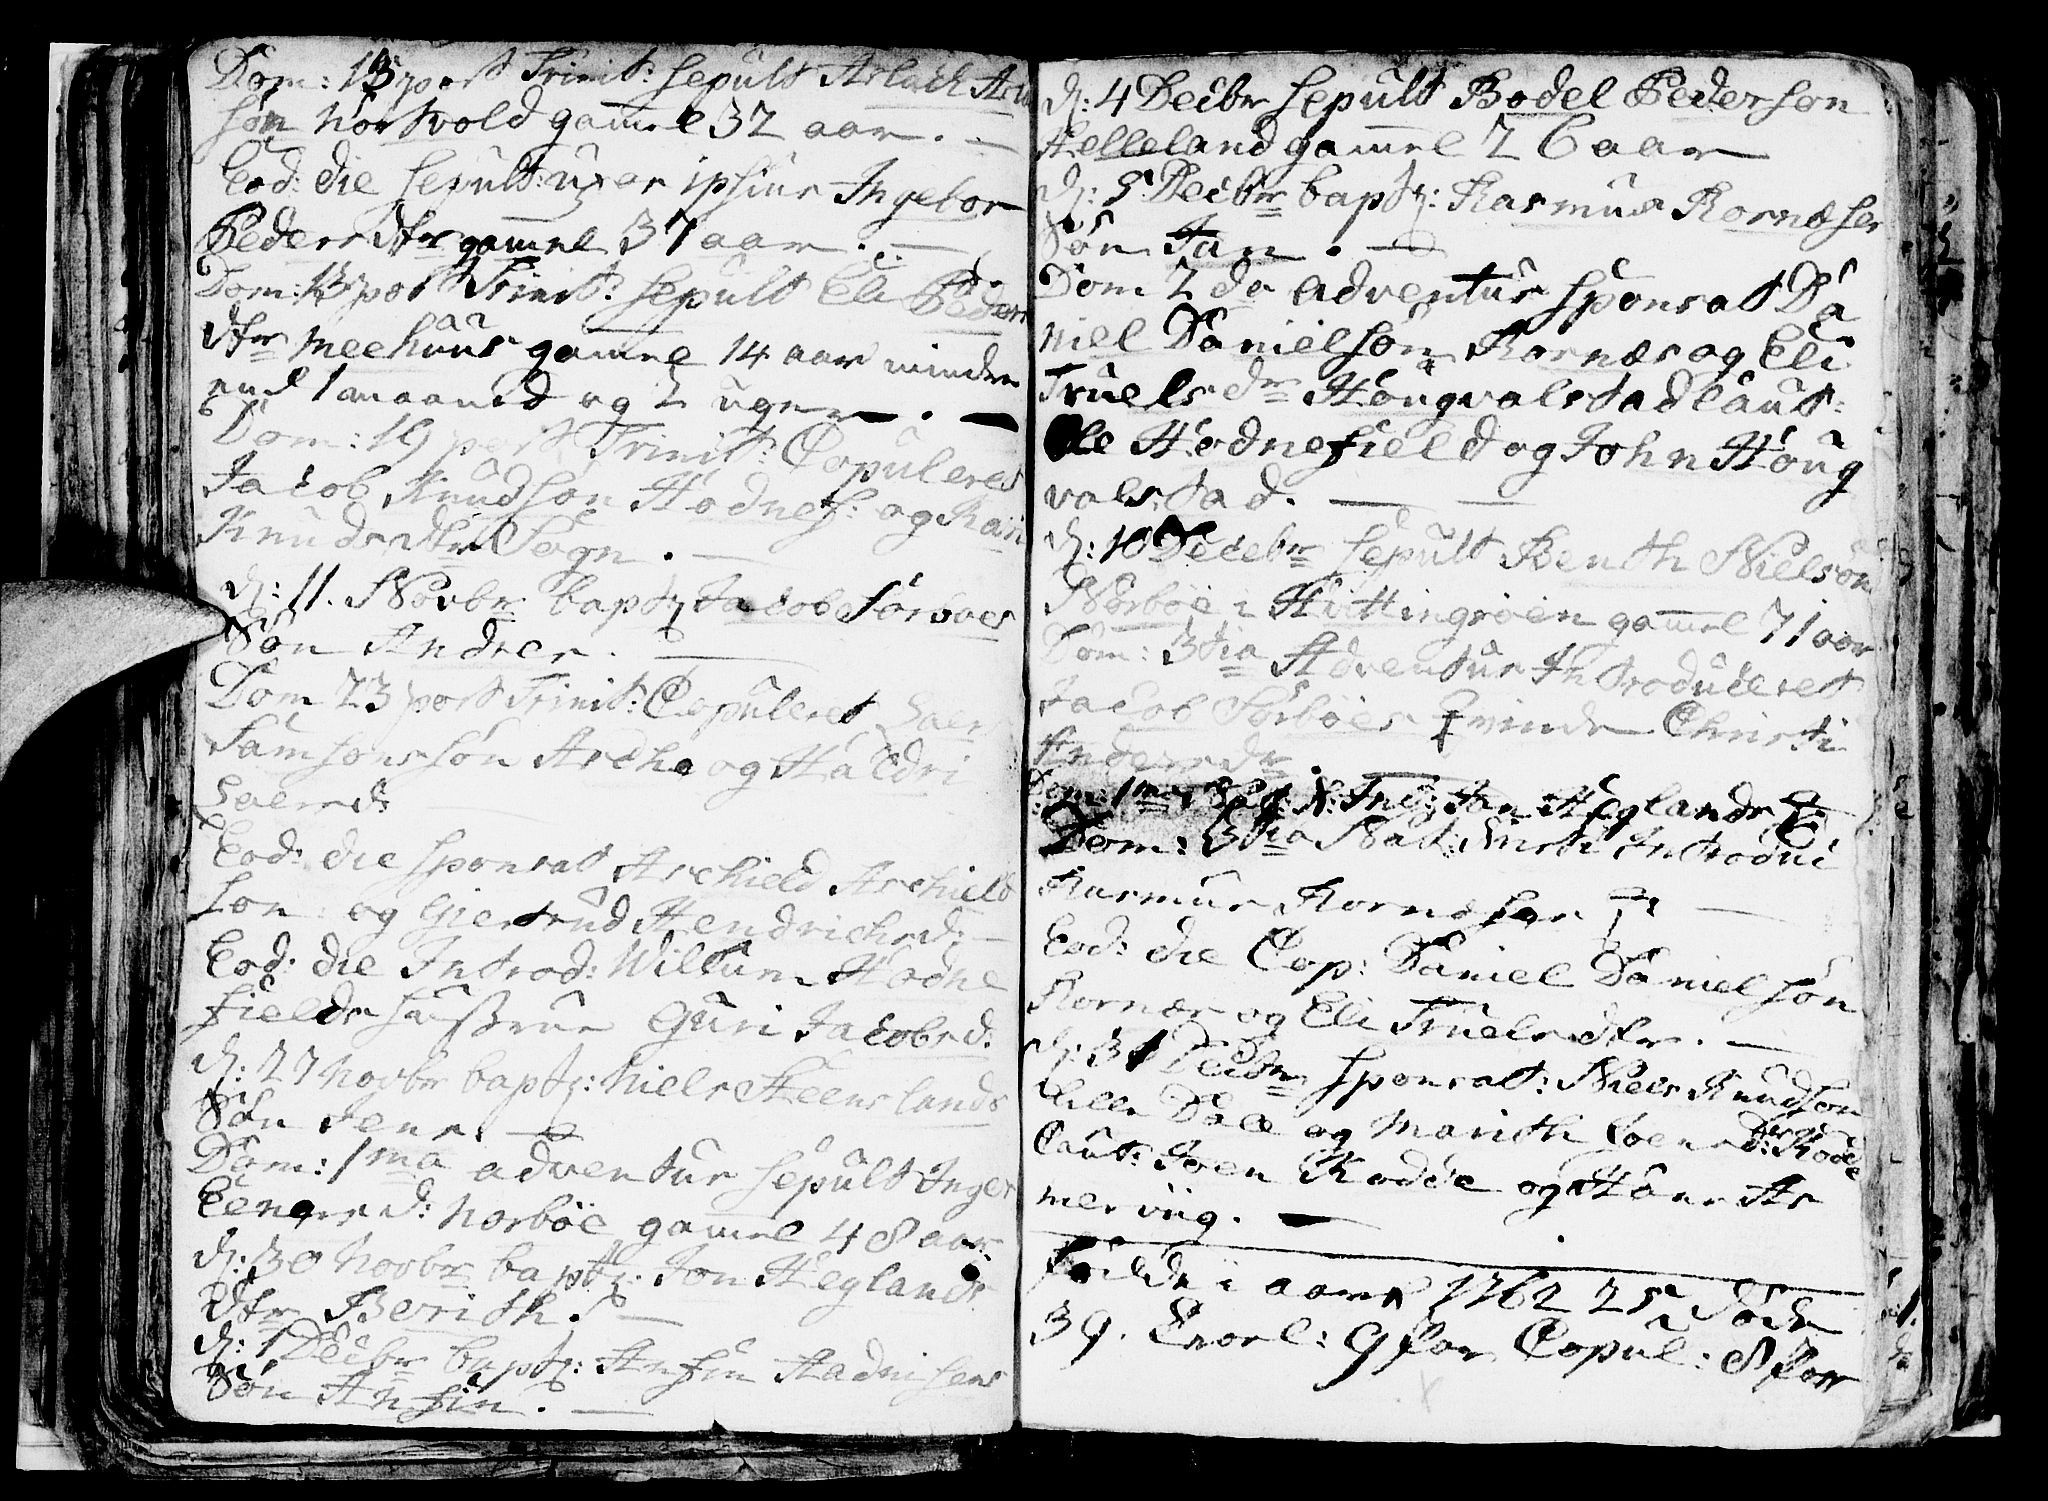 Dom: 13 post Trinit: Sepult Aslach
Søn Norhvold gamel 32 aar. —
Eod: die Sepult: uxor ipsius Ingebor
Peders dtr gamel 37 aar. —
Dom: post Trinit: Sepult Eli Peders
dtr Meehuus gamel 14 aar minder
end 1 maaned og 2 uger —. —
Dom: 19 post Trinit: Copuleres
Jacob Knudsøn Hodnef: og Kari
Knuds dtr Sogn. —
d: 11. Novbr bapt: Jacob Sørbøes
Søn Andres. —
Dom 23 post Trinit: Copuleret Laers
Samsonssøn Aske og Haldri
Laersd:
Eod: die sponsat Archield Archield
søn og Giertrud Hendrichsd: —
Eod: die Introd: Willum Hodne
fields hustrue Guri Jacobsd:
d: 27 Novbr bapt: Niels Steenslands
Søn Jens. —
Dom: 1ma adventus Sepult Inger
d: Norbøe gamel 48 aar.
d: 30 Novbr bapt: Jon Heglands
dtr Berith. —
d: 1 Decbr bapt: Anfin Aadnisens
Søn Anfin. —
d: 4 Decbr Sepult Bodel Pedersøn
Helleland gamel 26 aar —
d: 5 Decbr bapt: Rasmus Rornæser
Søn Jan. —
Dom 2da adventus sponsat Da
niel Danielsøn Rornæs og Eli
Truels dr Hougvalstad Caut:
Ole Hodnefield og John Houg
valstad. — —
d: 10 Decebr Sepult Benth Nielsøn
Nørbøe i Hvittingsøen gamel 71 aar
Dom: 3tia Adventus Introduceret
Jacob Sørbøes qvinde Christi
Andersdr
Dom: 1ma Jan Heglands
Dom: 3tia Nat: Introduc
Rasmus Rornæser
Eod: die Cop: Daniel Danielsøn
Rornæs og Eli Truels dtr. —
d: 31 Decbr sponsat: Niels Knudsøn
Lille Dale og Marith Joensd: Kodde
Caut: Joen Kodde og Hans As
mervig. —
fødde i aaret 1762 25, døde
39. Trorl: 9 par Copul: 8 par